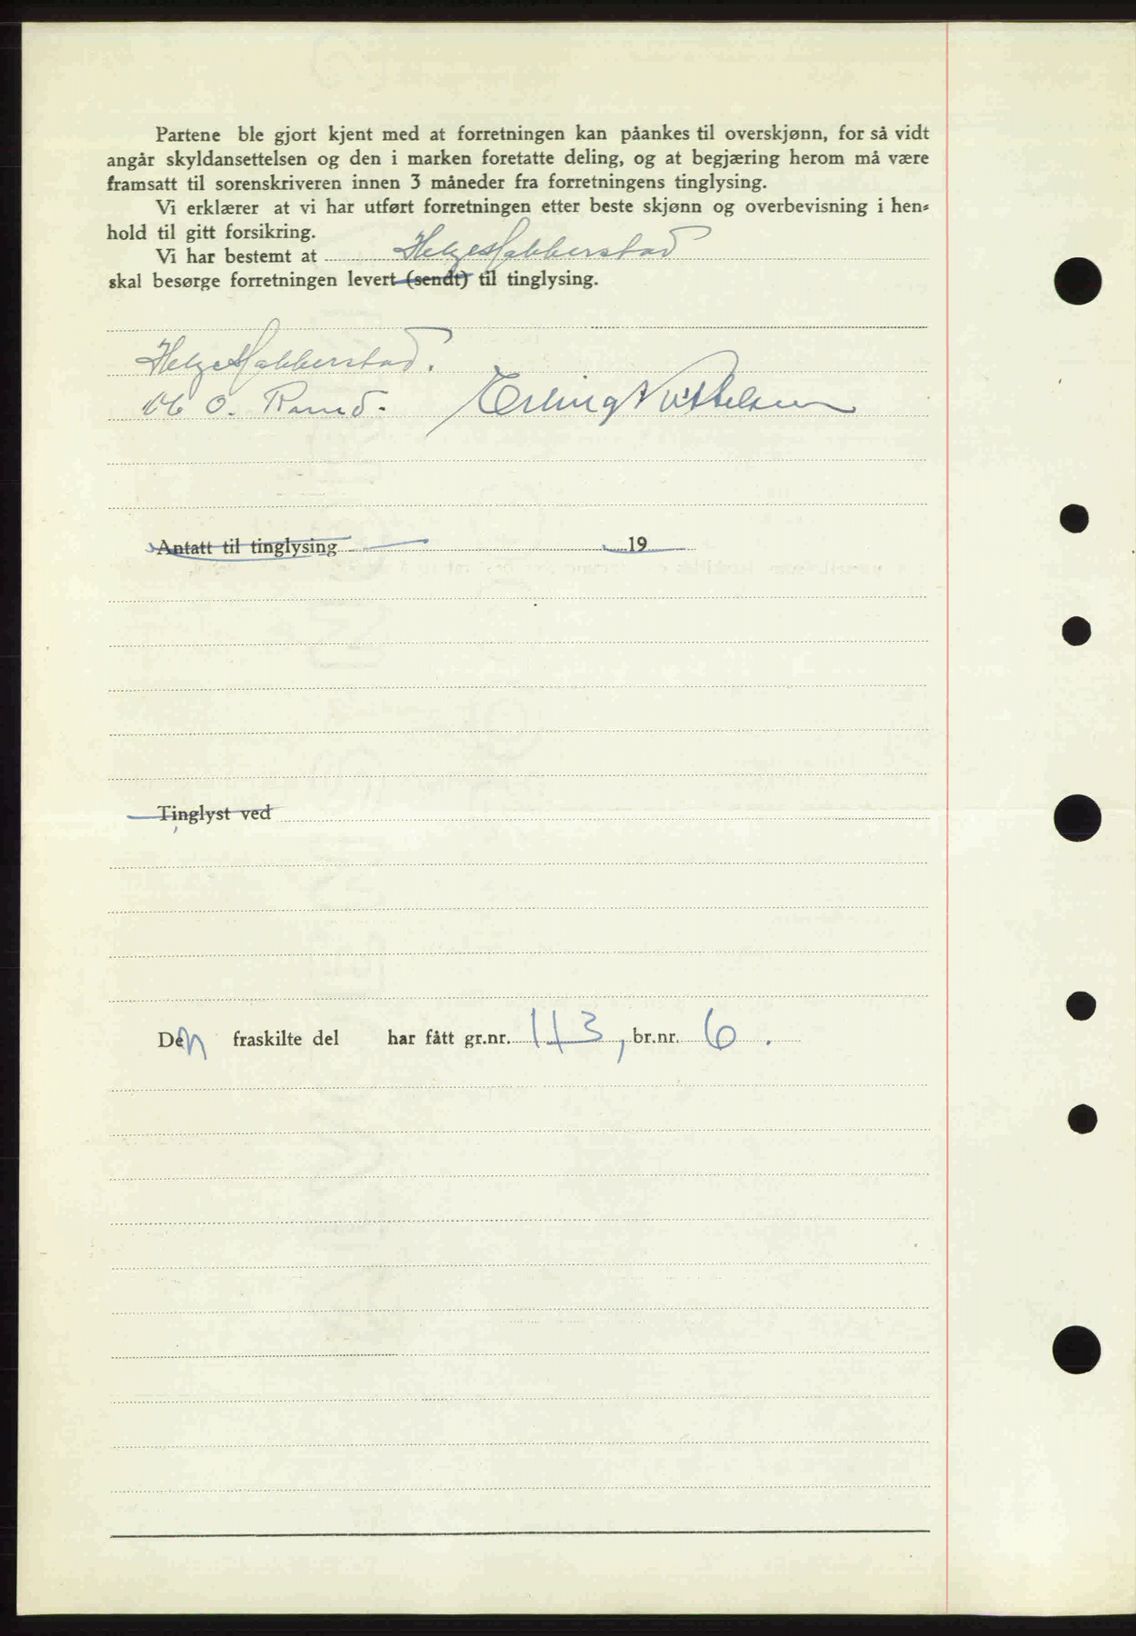 Partene ble gjort kjent med at forretningen kan påankes til overskjønn, for så vidt
angår skyldansettelsen og den i marken foretatte deling, og at begjæring herom må være
framsatt til sorenskriveren innen 3 måneder fra forretningens tinglysing.
Vi erklærer at vi har utført forretningen etter beste skjønn og overbevisning i hen-
hold til gitt forsikring.
Vi har bestemt at Helge Habberstad
skal besørge forretningen levert (sendt) til tinglysing.
Helge Habberstad.
O. Rand. Erling
Antatt til tinglysing 19
Tinglyst ved
Den fraskilte del har fått gr.nr. 113, br.nr. 6.